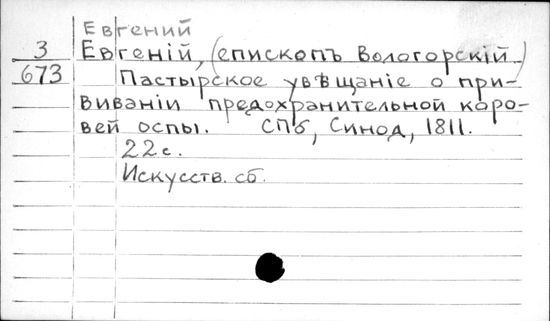 Евгений
3 Евгеній, (епископъ Вологорскій)
673 Пастырское увѣщаніе о при-
виваніи предохранительной коро-
вей оспы. СПб, Синод, 1811.
22 с.
Искусств. сб.